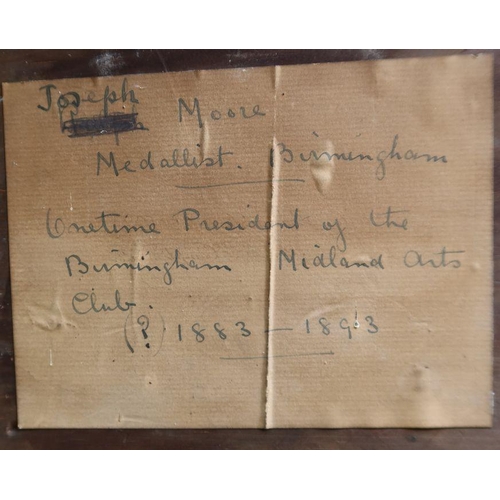 Joseph Moore
Medallist. Birmingham
Onetime President of the
Birmingham Midland Arts
Club.
(?) 1883 - 1893